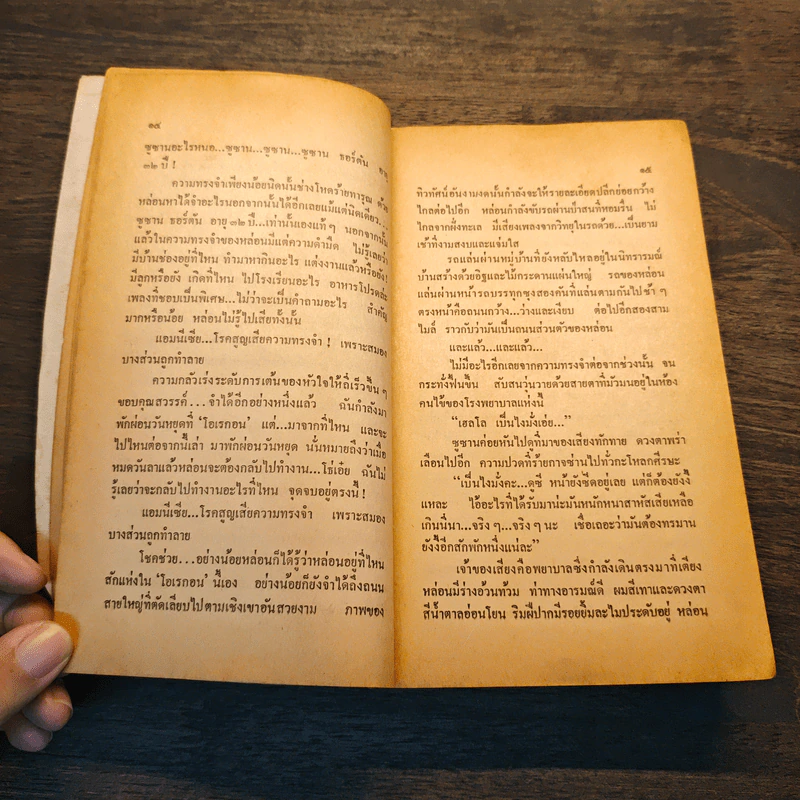 ๑๔
ซูซานอะไรหนอ...ซูซาน...ซูซาน...ซูซาน ธอร์ตัน อายุ
๓๒ ปี !
ความทรงจำเพียงน้อยนิดนั้นช่างโหดร้ายทารุณ ด้วย
หล่อนหาได้จำอะไรนอกจากนั้นได้อีกเลยแม้แต่นิดเดียว...
ซูซาน ธอร์ตัน อายุ ๓๒ ปี...เท่านั้นเองแท้ๆ นอกจากนั้น
แล้วในความทรงจำของหล่อนมีแต่ความดำมืด ไม่รู้เลยว่า
มีบ้านช่องอยู่ที่ไหน ทำมาหากินอะไร แต่งงานแล้วหรือยัง!
มีลูกหรือยัง เกิดที่ไหน ไปโรงเรียนอะไร อาหารโปรดละ
เพลงที่ชอบเป็นพิเศษ...ไม่ว่าจะเป็นคำถามอะไร สำคัญ
มากหรือน้อย หล่อนไม่รู้ไปเสียทั้งนั้น
แอมนีเซีย...โรคสูญเสียความทรงจำ ! เพราะสมอง
บางส่วนถูกทำลาย
ความกลัวเร่งระดับการเต้นของหัวใจให้ถี่เร็วขึ้น ๆ
ขอบคุณสวรรค์...จำได้อีกอย่างหนึ่งแล้ว ฉันกำลังมา
พักผ่อนวันหยุดที่ ‘โอเรกอน’ แต่...มาจากที่ไหน และจะ
ไปไหนต่อจากนี้เล่า มาพักผ่อนวันหยุด นั้นหมายถึงว่าเมื่อ
หมดวันลาแล้วหล่อนจะต้องกลับไปทำงาน...โธ่เอ๋ย ฉันไม่
รู้เลยว่าจะกลับไปทำงานอะไรที่ไหน จุดจบอยู่ตรงนี้ !
แอมนีเซีย...โรคสูญเสียความทรงจำ เพราะสมอง
บางส่วนถูกทำลาย
โชคช่วย...อย่างน้อยหล่อนก็ได้รู้ว่าหล่อนอยู่ที่ไหน
สักแห่งใน ‘โอเรกอน’ นี้เอง อย่างน้อยก็ยังจำได้ถึงถนน
สายใหญ่ที่ตัดเลียบไปตามเชิงเขาอันสวยงาม ภาพของ
๑๕
ทิวทัศน์อันงามงดนั้นกำลังจะให้รายละเอียดปลีกย่อยกว้าง
ไกลต่อไปอีก หล่อนกำลังขับรถผ่านป่าสนที่หอมรื่น ไม่
ไกลจากฝั่งทะเล มีเสียงเพลงจากวิทยุในรถด้วย...เป็นยาม
เช้าที่งามสงบและแจ่มใส
รถแล่นผ่านหมู่บ้านที่ยังหลับใหลอยู่ในนิทรารมณ์
บ้านสร้างด้วยอิฐและไม้กระดานแผ่นใหญ่ รถของหล่อน
แล่นผ่านหน้ารถบรรทุกซุงสองคันที่แล่นตามกันไปช้า ๆ
ตรงหน้าคือถนนกว้าง...ว่างและเงียบ ต่อไปอีกสองสาม
ไมล์ ราวกับว่ามันเป็นถนนส่วนตัวของหล่อน
และแล้ว...และแล้ว...
ไม่มีอะไรอีกเลยจากความทรงจำต่อจากช่วงนั้น จน
กระทั่งฟื้นขึ้น สับสนวุ่นวายด้วยสายตาที่มัวมนอยู่ในห้อง
คนไข้ของโรงพยาบาลแห่งนี้
“เฮลโล เป็นไงมั่งเอ่ย...”
ซูซานค่อยหันไปดูที่มาของเสียงทักทาย ดวงตาพร่า
เลือนไปอีก ความปวดที่ร้ายกาจซ่านไปทั่วกะโหลกศีรษะ
“เป็นไงมั่งคะ...ดูซี หน้ายังซีดอยู่เลย แต่ก็ต้องยังงี้
แหละ ไอ้อะไรที่ได้รับมาน่ะมันหนักหนาสาหัสเสียเหลือ
เกินนี่นา...จริง ๆ...จริง ๆ นะ เชื่อเถอะว่ามันต้องทรมาน
ยังงี้อีกสักพักหนึ่งแน่ละ”
เจ้าของเสียงคือพยาบาลซึ่งกำลังเดินตรงมาที่เตียง
หล่อนมีร่างอ้วนท้วม ท่าทางอารมณ์ดี ผมสีเทาและดวงตา
สีน้ำตาลอ่อนโยน ริมฝีปากมีรอยยิ้มละไมประดับอยู่ หล่อน